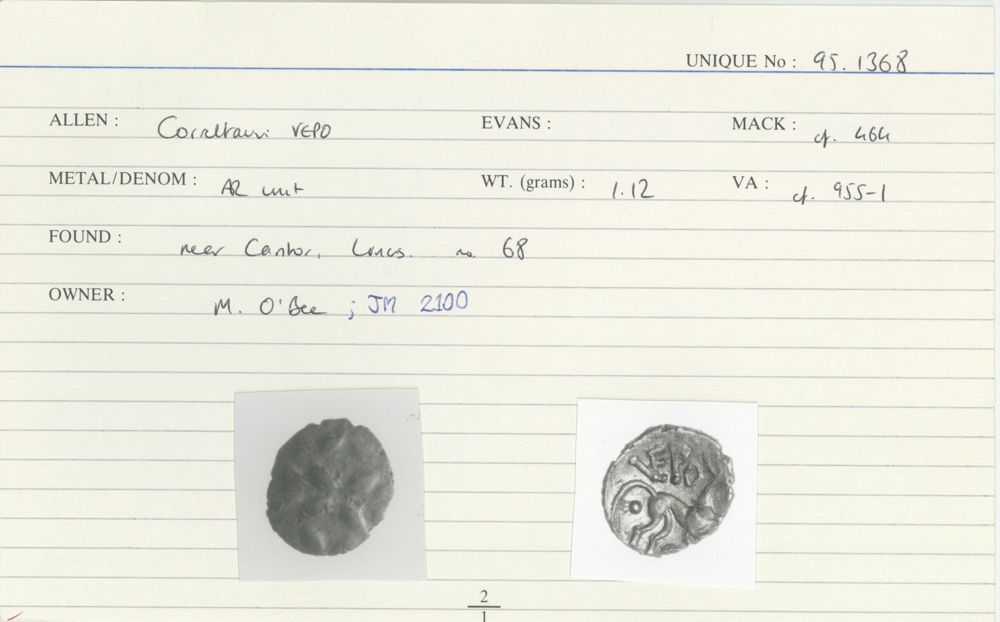 UNIQUE No : 95.1368
ALLEN : Corieltauvi VEPO EVANS : MACK : cf. 464
METAL/DENOM : AR unit WT. (grams) : 1.12 VA : cf. 955-1
FOUND : near Lincs. no. 68
OWNER : M. O'Bee ; JM 2100
VEPO
2
1